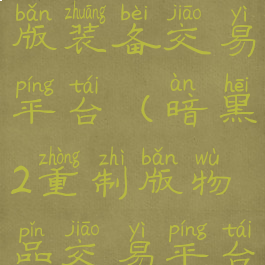 bǎn zhuāng bèi jiāo yì
版装备交易
píng tái àn hēi
平台(暗黑
zhòng zhì bǎn wù
2重制版物
pǐn jiāo yì píng tái
品交易平台